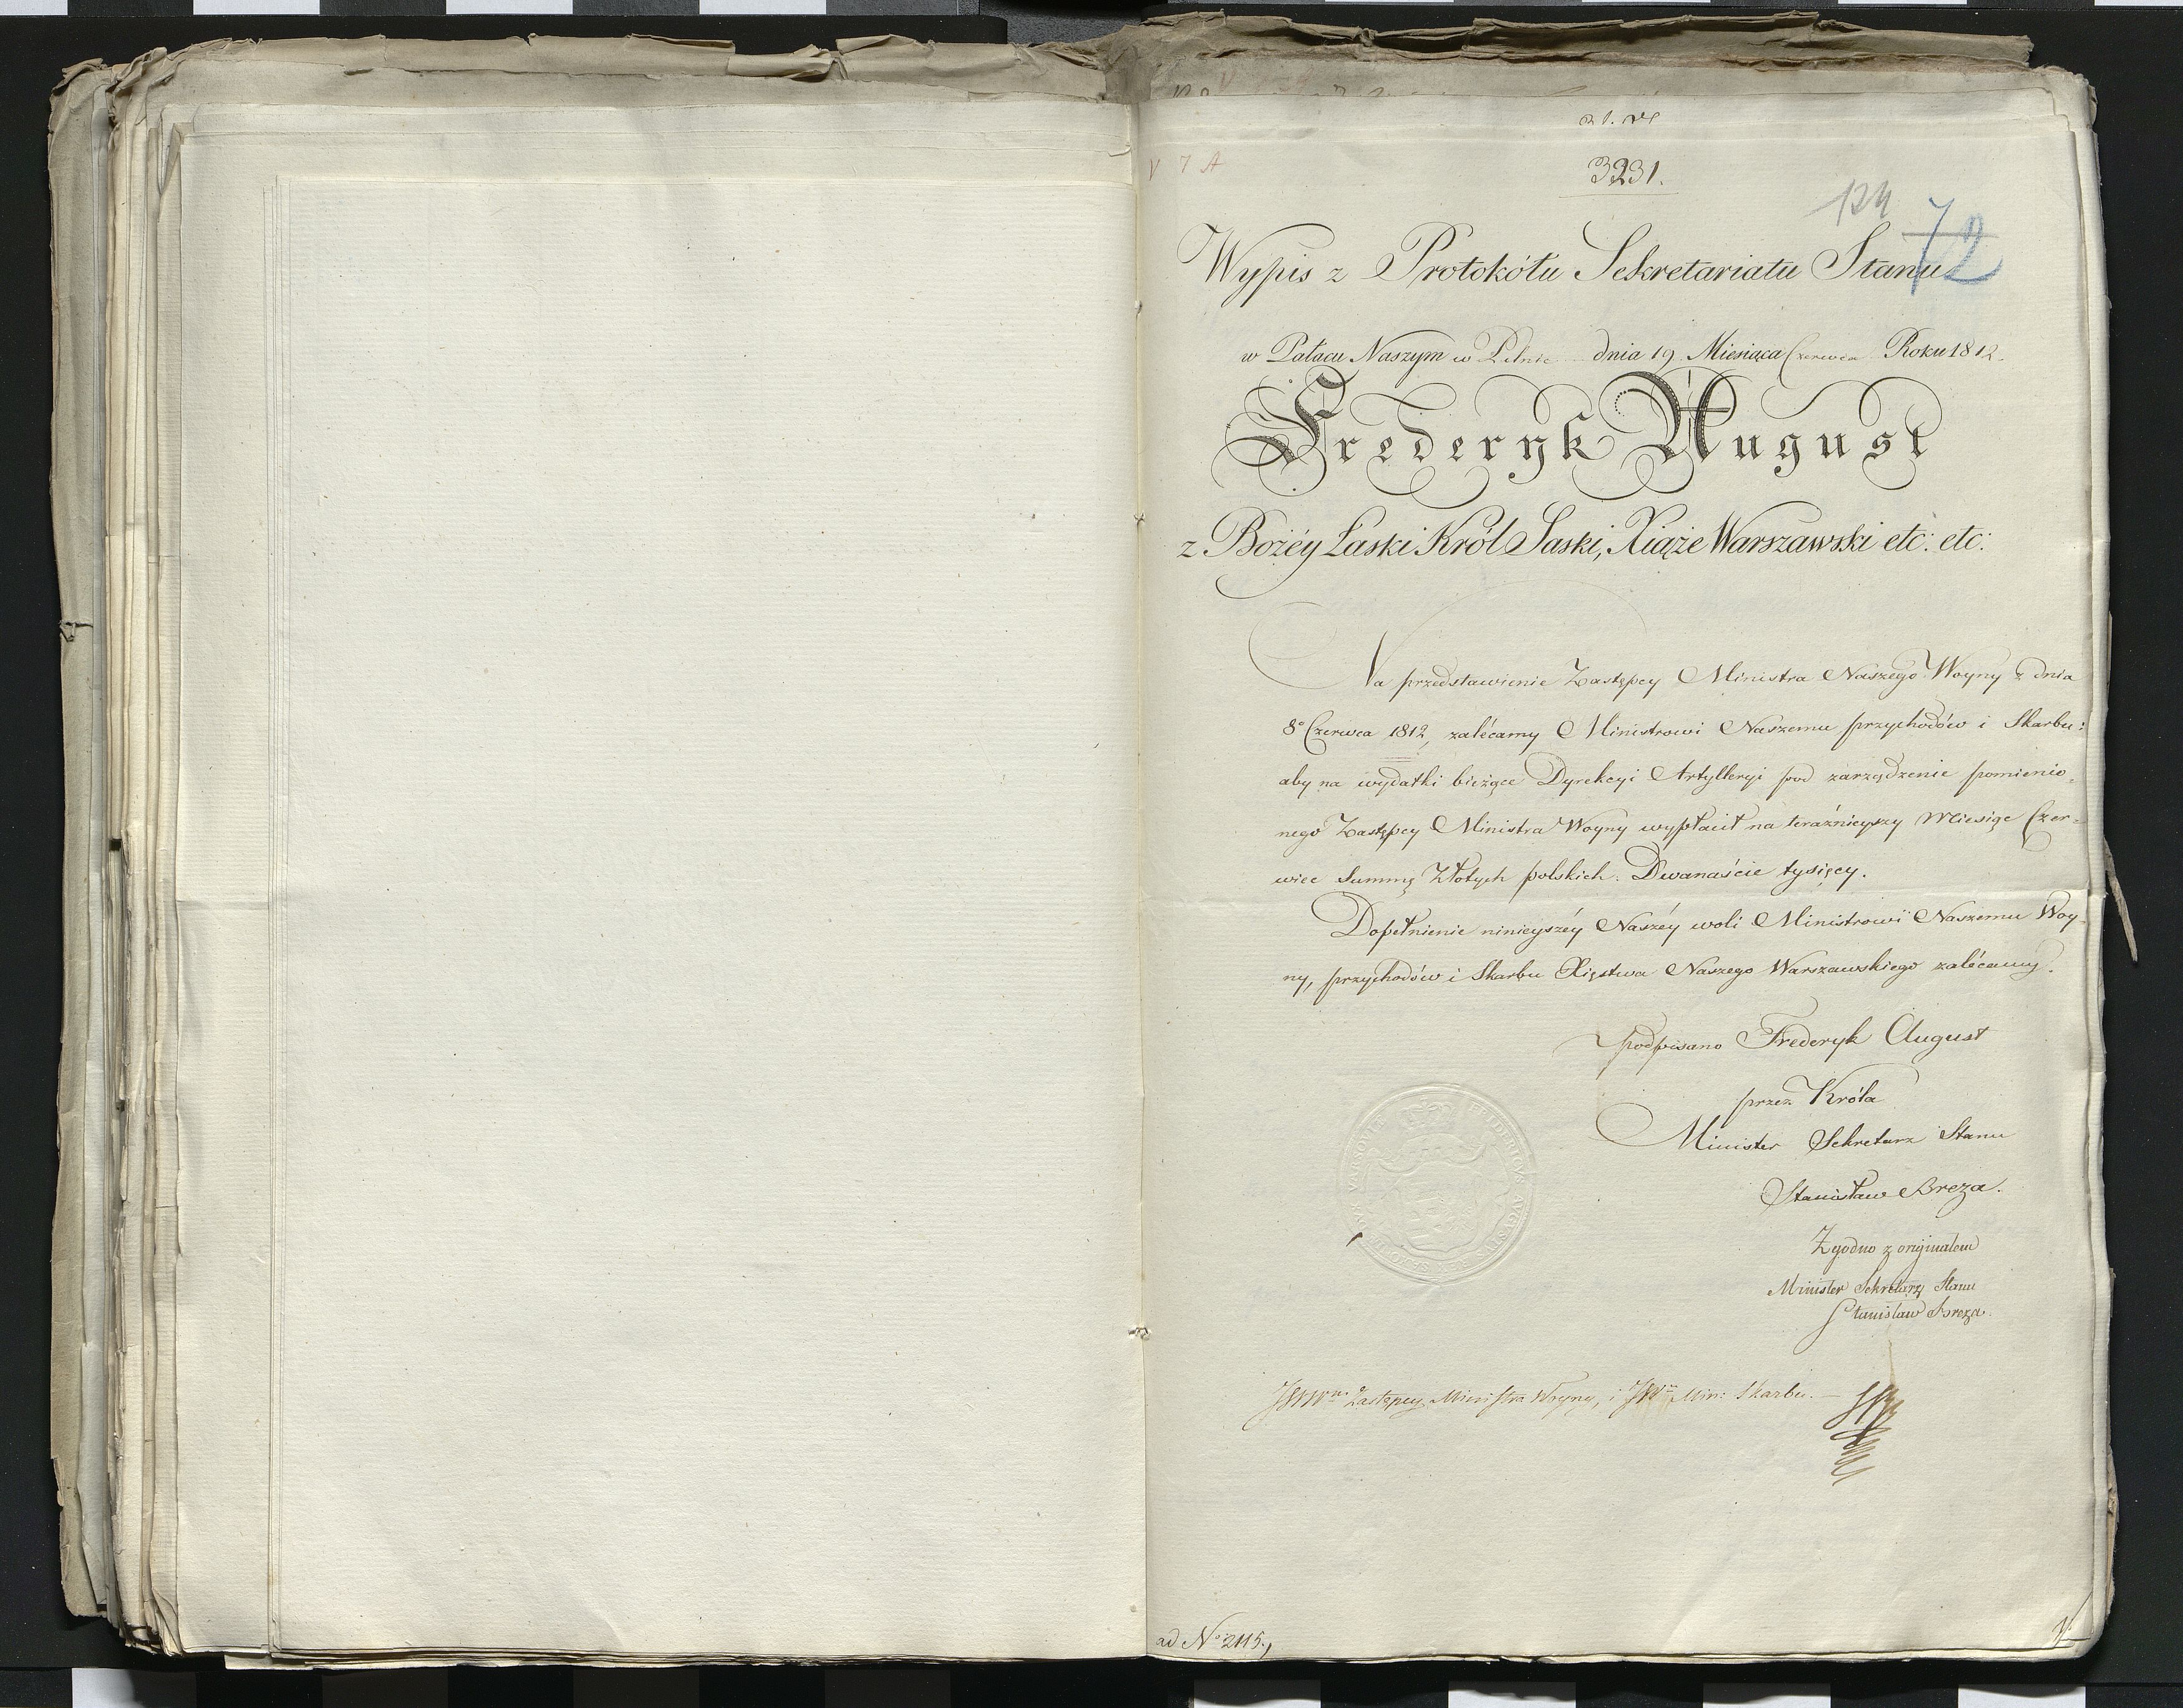 3231.
124
72
Wypis z Protokółu Sekretariatu Stanu
w Pałacu Naszym w Pilnic dnia 19 Miesiąca Czerwca Roku 1812.
Frederyk August
z Bożéy Łaski Król Saski, Xiąże Warszawski etc: etc:
Na przedstawienie Zastępcy Ministra Naszego Woyny z dnia
8° Czerwca 1812, zalécamy Ministrowi Naszemu przychodów i Skarbu:
aby na wydatki bieżące Dyrekcyi Artylleryi pod zarządzenie pomienio=
nego Zastępcy Ministra Woyny wypłacił na teraźnieyszy Miesiąc Czer=
wiec Summę Złotych polskich. Dwanaście tysięcy.
Dopełnienie ninieyszéy Naszéy woli Ministrowi Naszemu Woy-
ny, przychodów i Skarbu Xięstwa Naszego Warszawskiego zalécamy.
podpisano Frederyk August
przez Króla
Minister Sekretarz Stanu
Stanisław Breza.
Zgodno z originałem
Minister Sekretarz Stanu
Stanisław Breza.
Zastępcy Ministra Woyny, i Min: Skarbu.
ad N° 2115.,